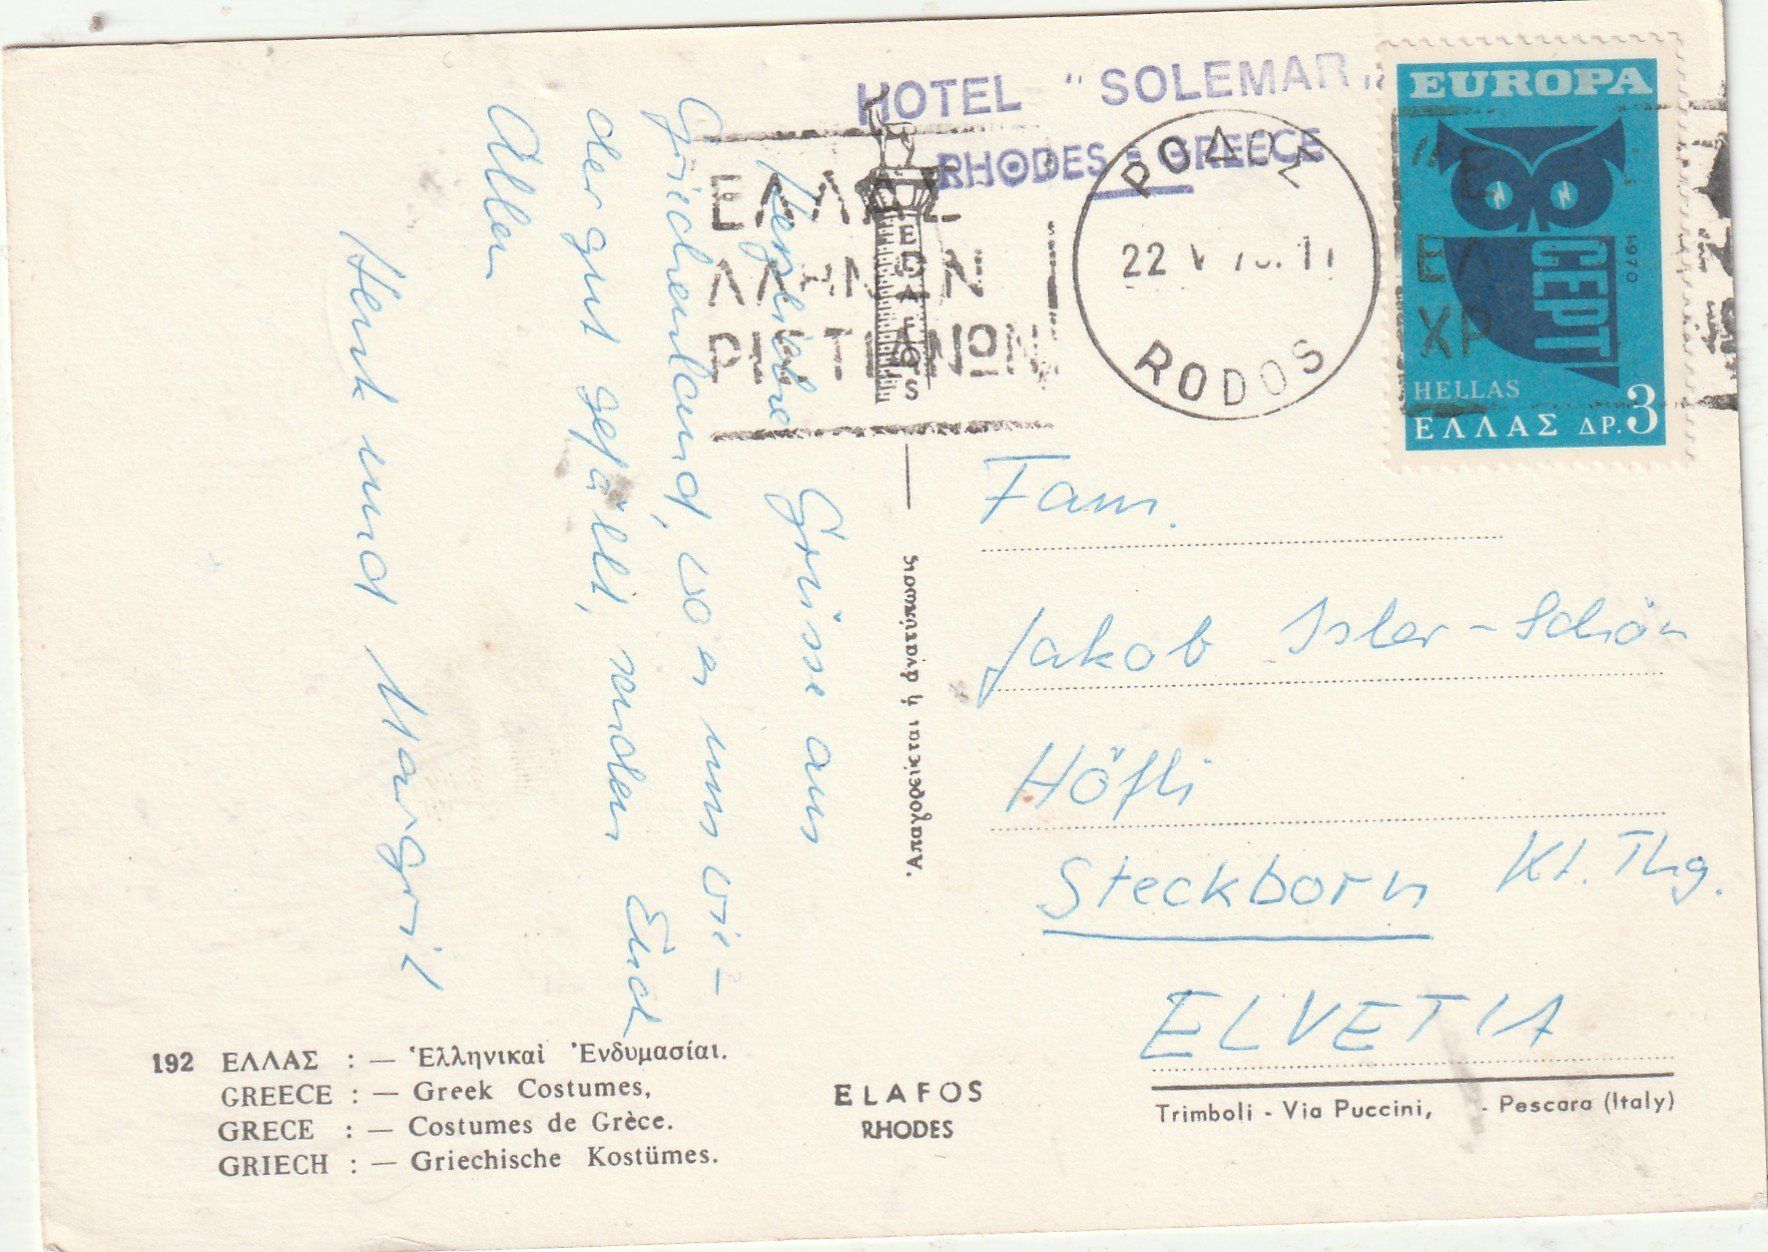 HOTEL "SOLEMAR"
RHODES - GREECE
ΕΛΛΑΣ
ΕΛΛΗΝΩΝ
ΧΡΙΣΤΙΑΝΩΝ
ELAFOS
ΡΟΔΟΣ
22 V 70. 11
RODOS
EUROPA
CEPT
1970
HELLAS
ΕΛΛΑΣ ΔΡ. 3
Herzliche Grüsse aus
Griechenland, wo es uns wie-
der gut gefällt, senden Euch
Allen
Henk und Margrit
Fam.
Jakob Isler-Schön
Höfli
Steckborn Kt. Thg.
ELVETIA
Ἀπαγορεύεται ἡ ἀνατύπωσις
192 ΕΛΛΑΣ : — Ἑλληνικαὶ Ἐνδυμασίαι.
GREECE : — Greek Costumes,
GRECE : — Costumes de Grèce.
GRIECH : — Griechische Kostümes.
ELAFOS
RHODES
Trimboli - Via Puccini, - Pescara (Italy)